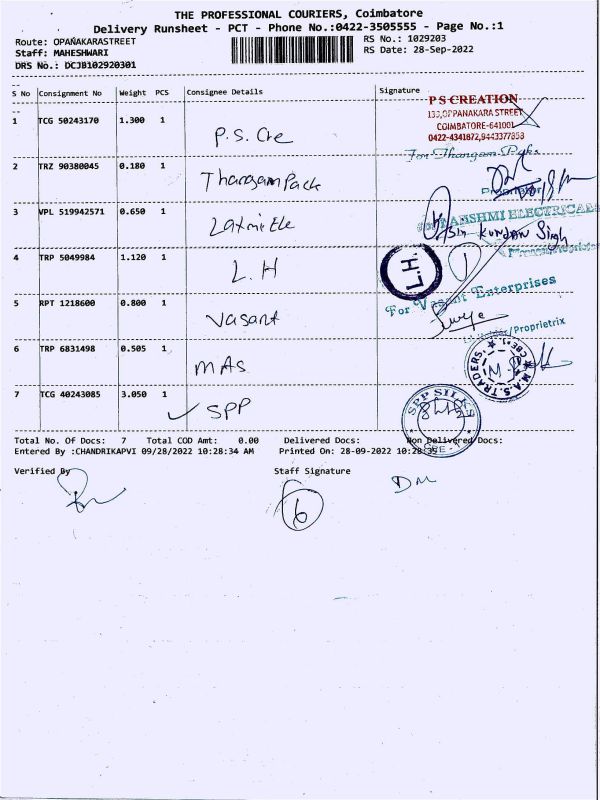 THE PROFESSIONAL COURIERS, Coimbatore
Delivery Runsheet - PCT - Phone No.:0422-3505555 - Page No.:1
Route: OPANAKARASTREET
RS No.: 1029203
Staff: MAHESHWARI
RS Date: 28-Sep-2022
DRS No.: DCJB102920301
S No Consignment No Weight PCS Consignee Details Signature
1 TCG 50243170 1.300 1 P.S. Cre
P S CREATION
133,OPPANAKARA STREET
COIMBATORE-641001
0422-4341872,9443377858
For Thangam Packs
2 TRZ 90380045 0.180 1 Thangam Pack
Proprietor
3 VPL 519942571 0.650 1 Laxmi Ele
LAKSHMI ELECTRICALS
KUNDAN Singh
4 TRP 5049984 1.120 1 L.H
L.H.
For Vasant Enterprises
5 RPT 1218600 0.800 1 Vasant
/Proprietrix
6 TRP 6831498 0.505 1 MAS
M.A.S. TRADERS. CBE-1
7 TCG 40243085 3.050 1 SPP
SPP SILKS CBE
Total No. Of Docs: 7 Total COD Amt: 0.00 Delivered Docs: Non Delivered Docs:
Entered By :CHANDRIKAPVI 09/28/2022 10:28:34 AM Printed On: 28-09-2022 10:28:35
Verified By Staff Signature
6
DM